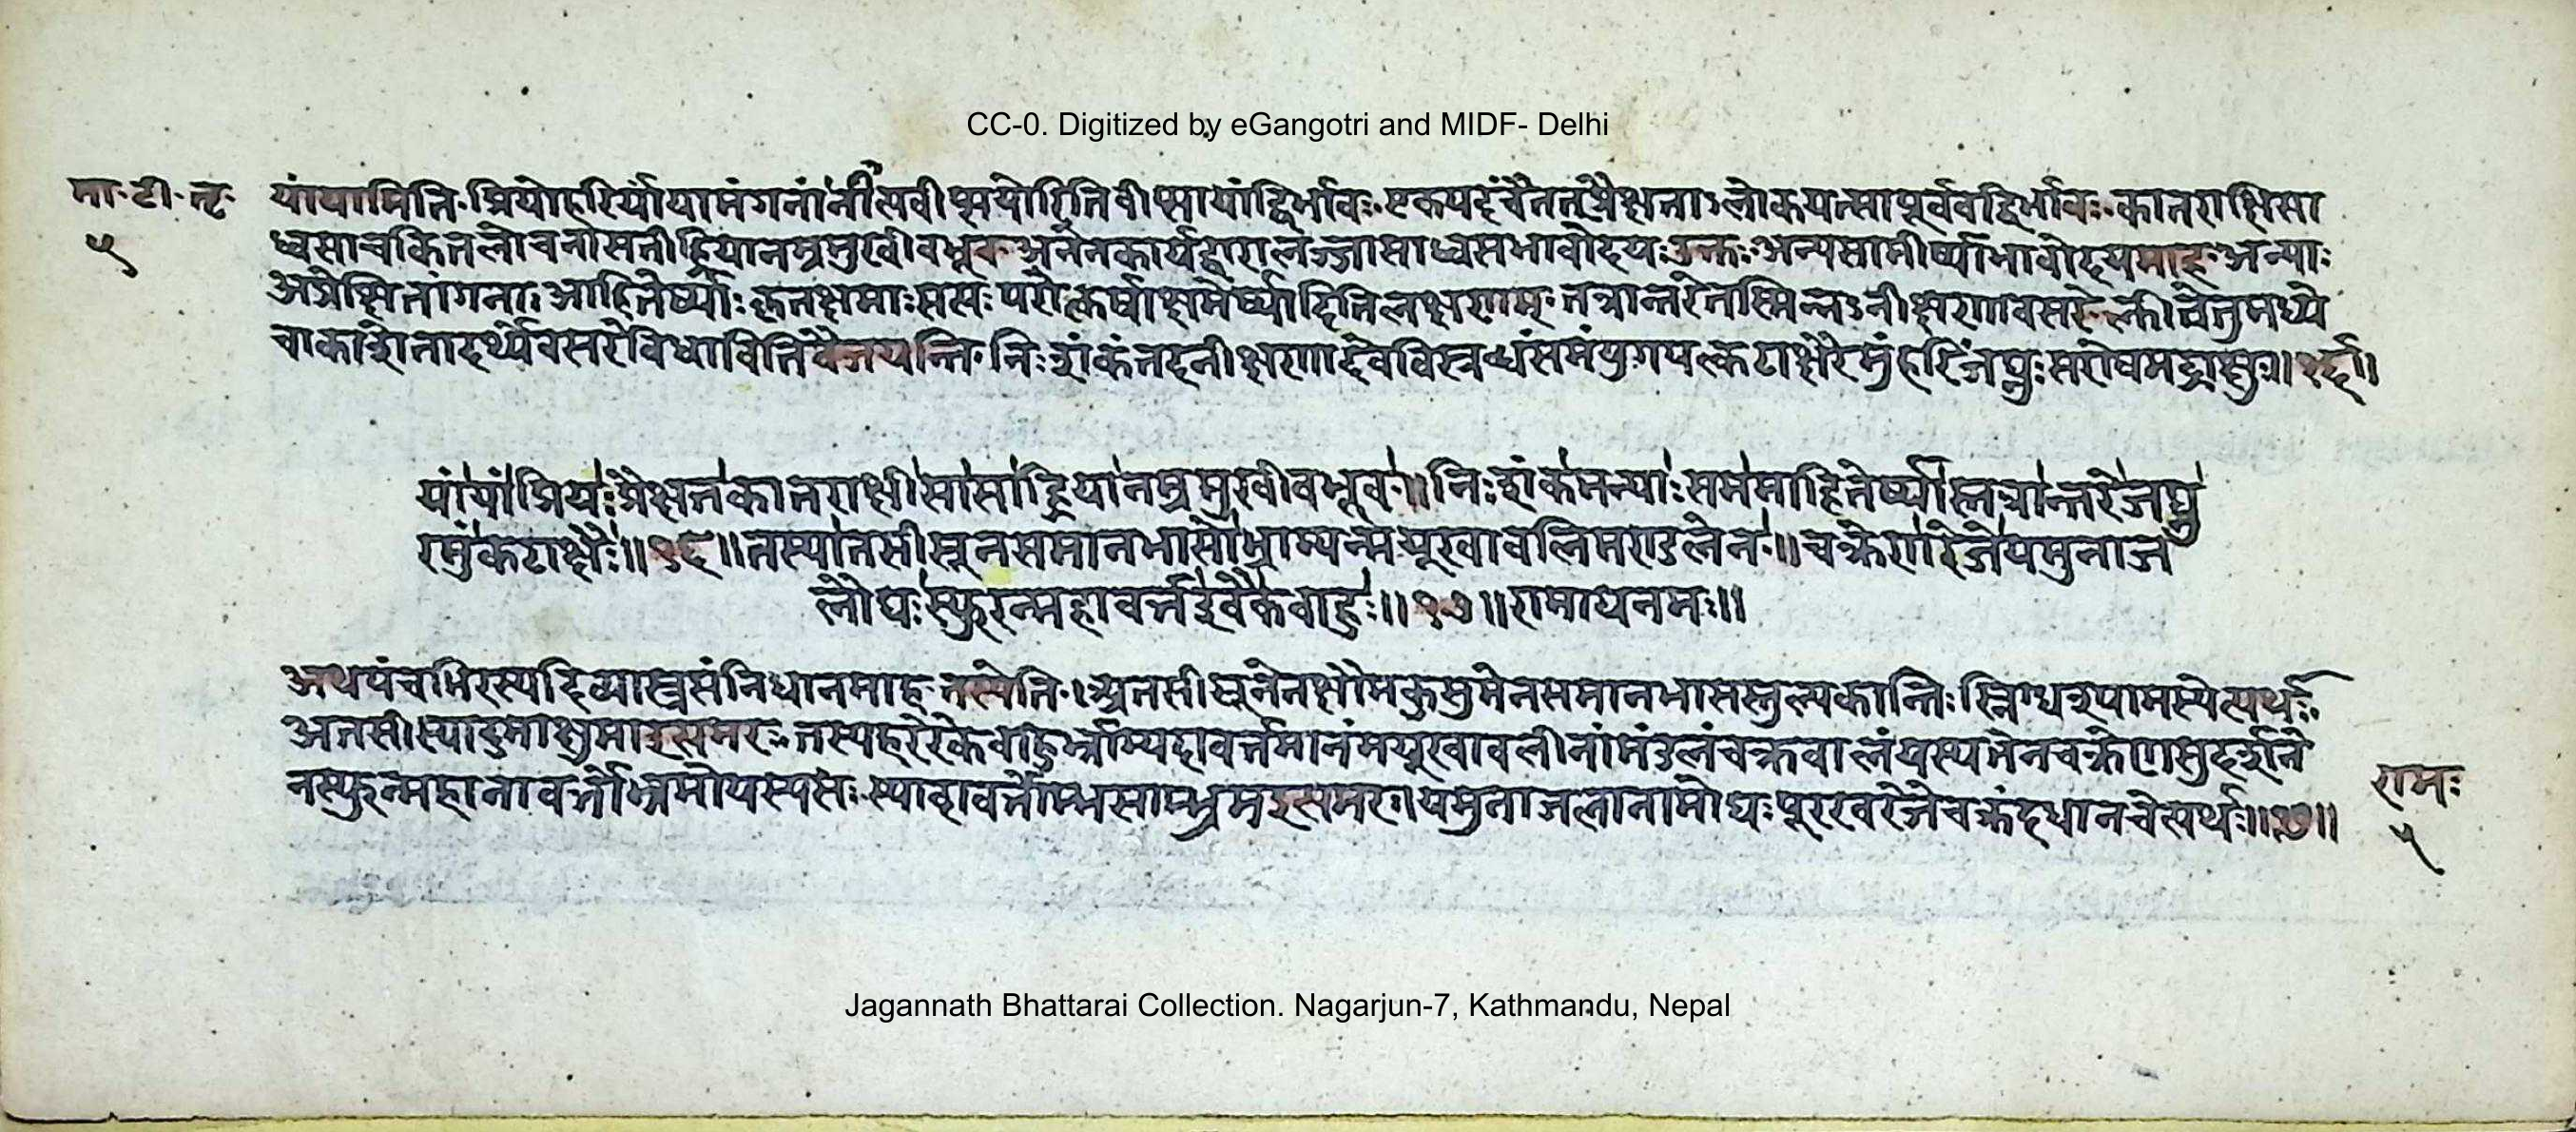 CC-0. Digitized by eGangotri and MIDF- Delhi
मा॰टी॰तृ॰
५
यांयामिति॰प्रियोहरिर्यांयामंगनां नित्यवीप्सयोरितिवीप्सायांद्विर्भावः॰एकपदंचैतत्प्रैक्षताऽलोकयत्सापूर्ववद्द्विर्भावः॰कातराक्षिसा
ध्वसाचकितलोचनासतीह्रियानम्रमुखीबभूव॰अनेनकार्यद्वारालज्जासाध्वसभावोदयःउक्तः॰अन्यसामीर्ष्याभावोदयमाह॰अन्याः
अप्रेक्षितांगनाः आहितेर्ष्याः कृतक्षमाः सत्यः परोत्कर्षाक्षमेर्ष्या
तत्रान्तरेतस्मिन्नऽवीक्षणावसरे
अवसरेविधावितिवैजयन्ति॰निःशंकंतदनीक्षणादेवविस्रब्धंसमंयुगपत्कटाक्षैरमुंहरिंजघ्नुःसरोषमद्राक्षुः॥१६॥
यांयांप्रियःप्रैक्षतकातराक्षीसासाह्रियानम्रमुखीबभूव॥निःशंकमन्याःसममाहितेर्ष्यास्तत्रान्तरेजघ्नु
रमुंकटाक्षैः॥१६॥तस्यातसीसूनसमानभासोभ्राम्यन्मयूखावलिमण्डलेन॥चक्रेणरेजेयमुनाज
लौघःस्फुरन्महावर्त्तइवैकबाहुः॥१७॥रामायनमः॥
अथपंचभिरस्यदिव्यास्त्रसंनिधानमाह॰तस्येति॰।अतसीसूनेनक्षौमकुसुमेनसमानभासस्तुल्यकान्तिःस्निग्धश्यामस्येत्यर्थः॰
अतसीस्यादुमाक्षुमाइत्यमरः॰तस्यहरेरेकबाहुर्भ्राम्यदावर्त्तमानंमयूखावलीनांमंडलंचक्रवालंयस्यतेनचक्रेणसुदर्शने
नस्फुरन्महानावर्त्तोभ्रमोयस्यसः॰स्यादावर्त्तोम्भसाम्भ्रमइत्यमरः।यमुनाजलानामोघःपूरइवरेजेचक्रंदधानचेत्यर्थः॥१७॥
रामः
५
Jagannath Bhattarai Collection. Nagarjun-7, Kathmandu, Nepal